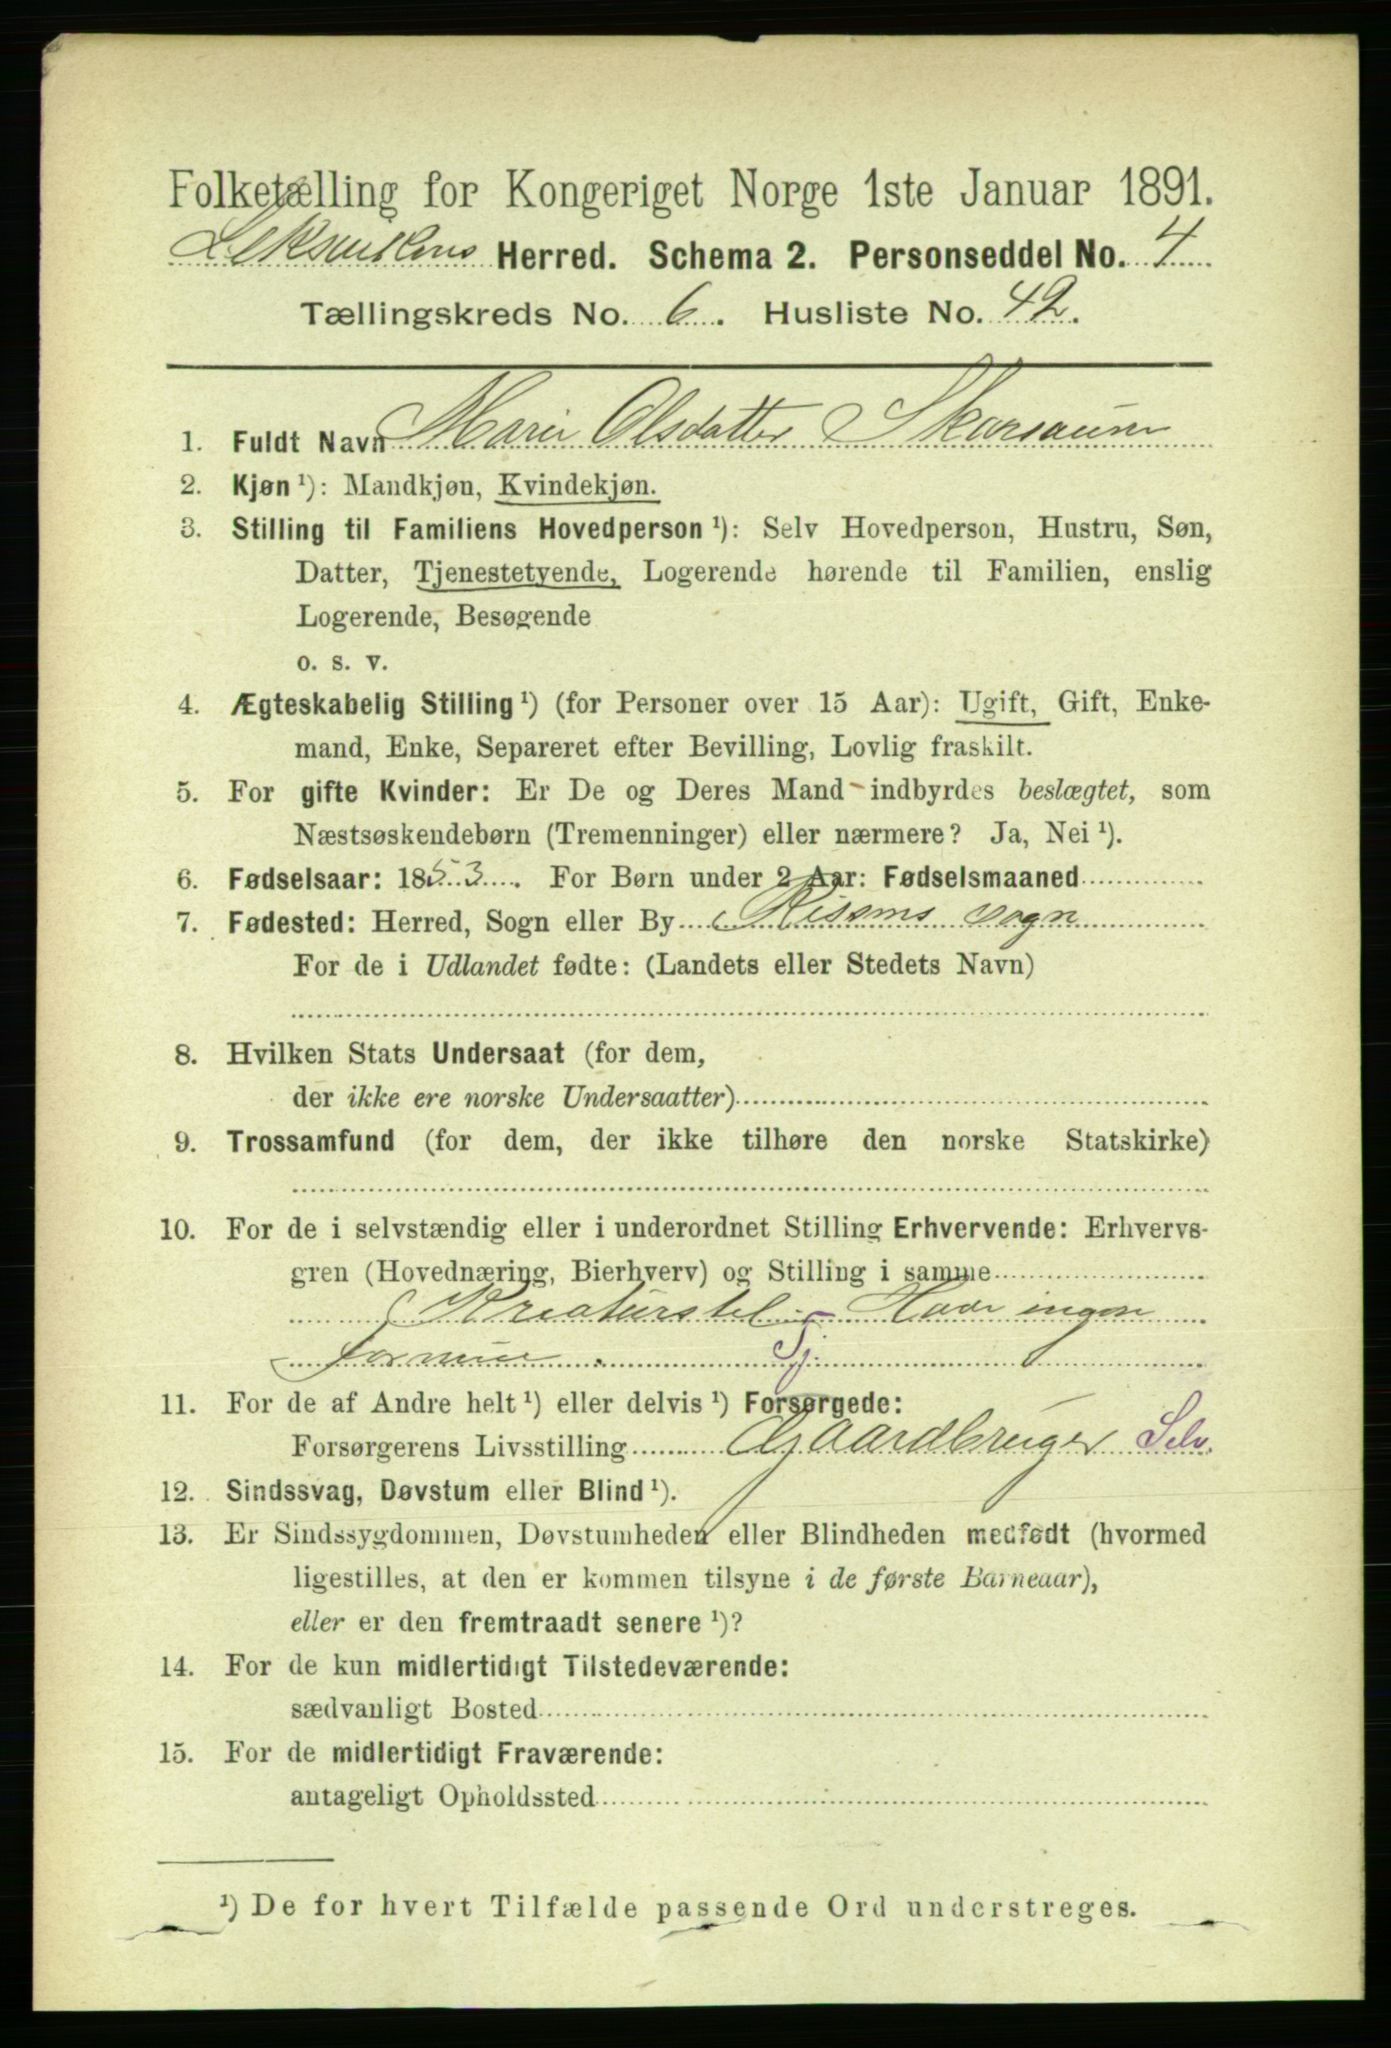 Folketælling for Kongeriget Norge 1ste Januar 1891.
Leksvikens Herred. Schema 2. Personseddel No. 4
Tællingskreds No. 6. Husliste No. 42.
1. Fuldt Navn Marie Olsdatter Skarsaune
2. Kjøn ¹): Mandkjøn, Kvindekjøn.
3. Stilling til Familiens Hovedperson ¹): Selv Hovedperson, Hustru, Søn,
Datter, Tjenestetyende, Logerende hørende til Familien, enslig
Logerende, Besøgende
o. s. v.
4. Ægteskabelig Stilling ¹) (for Personer over 15 Aar): Ugift, Gift, Enke-
mand, Enke, Separeret efter Bevilling, Lovlig fraskilt.
5. For gifte Kvinder: Er De og Deres Mand indbyrdes beslægtet, som
Næstsøskendebørn (Tremenninger) eller nærmere? Ja, Nei ¹).
6. Fødselsaar: 1853. For Børn under 2 Aar: Fødselsmaaned
7. Fødested: Herred, Sogn eller By Rissens Sogn
For de i Udlandet fødte: (Landets eller Stedets Navn)
8. Hvilken Stats Undersaat (for dem,
der ikke ere norske Undersaatter)
9. Trossamfund (for dem, der ikke tilhøre den norske Statskirke)
10. For de i selvstændig eller i underordnet Stilling Erhvervende: Erhvervs-
gren (Hovednæring, Bierhverv) og Stilling i samme
Kreaturstel - Har ingen
formue Tj.
11. For de af Andre helt ¹) eller delvis ¹) Forsørgede:
Forsørgerens Livsstilling Gaardbruger Selv.
12. Sindssvag, Døvstum eller Blind ¹).
13. Er Sindssygdommen, Døvstumheden eller Blindheden medfødt (hvormed
ligestilles, at den er kommen tilsyne i de første Barneaar),
eller er den fremtraadt senere ¹)?
14. For de kun midlertidigt Tilstedeværende:
sædvanligt Bosted
15. For de midlertidigt Fraværende:
antageligt Opholdssted
¹) De for hvert Tilfælde passende Ord understreges.